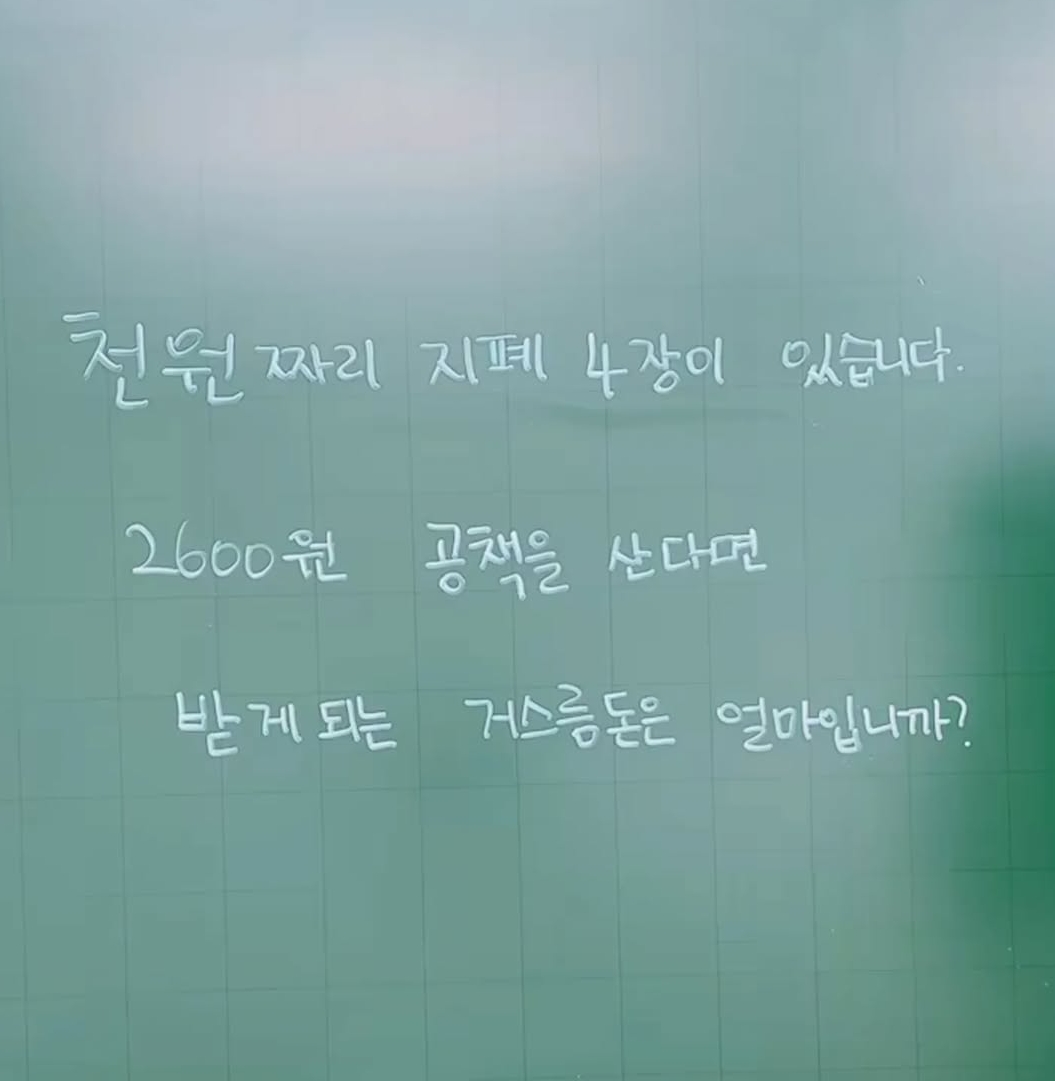 천원 짜리 지폐 4장이 있습니다.
2600원 공책을 산다면
받게 되는 거스름돈은 얼마입니까?